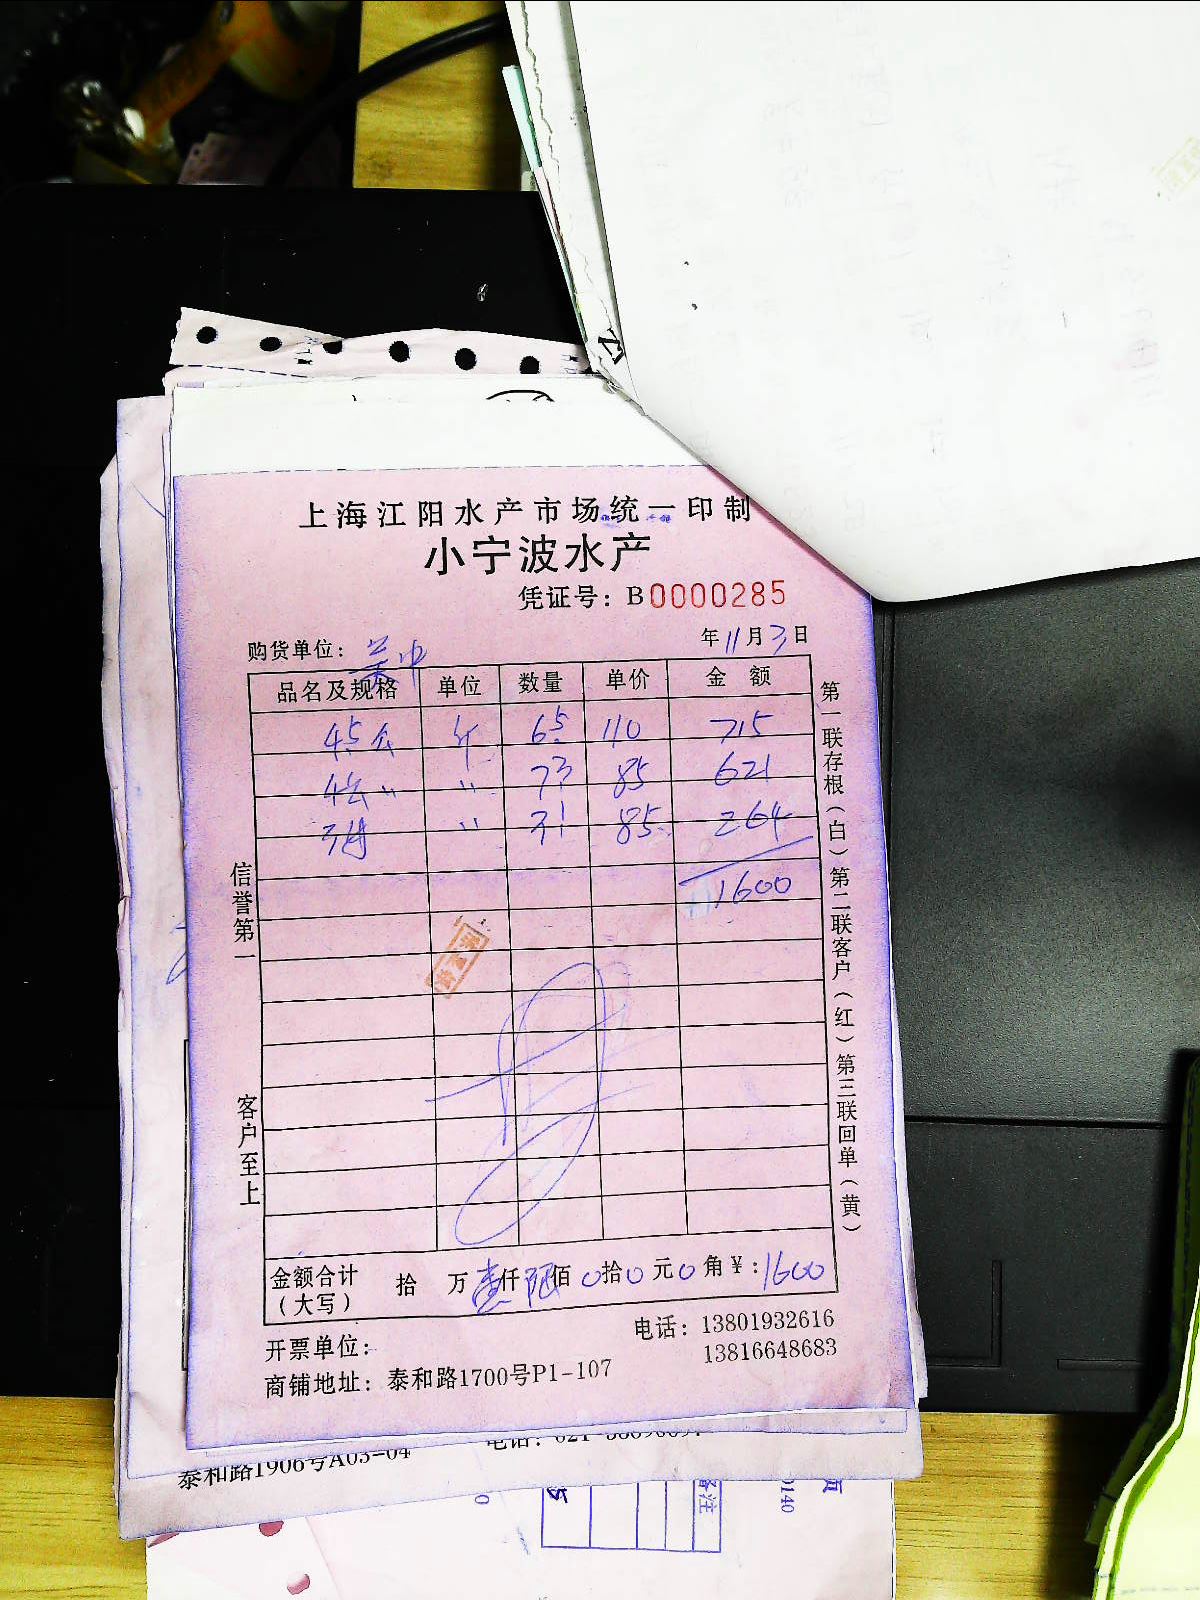 上海江阳水产市场统一印制
小宁波水产
凭证号：B0000285
购货单位：
年11月3日
品名及规格 单位 数量 单价 金额
斤 6.5 110 715
" 73 85 621
" 31 85 264
1600
信誉第一
客户至上
第一联存根（白）第二联客户（红）第三联回单（黄）
金额合计（大写） 拾 万壹仟陆佰0拾0元0角￥：1600
开票单位：
电话：13801932616
13816648683
商铺地址：泰和路1700号P1-107
泰和路1906号A03-04
备注